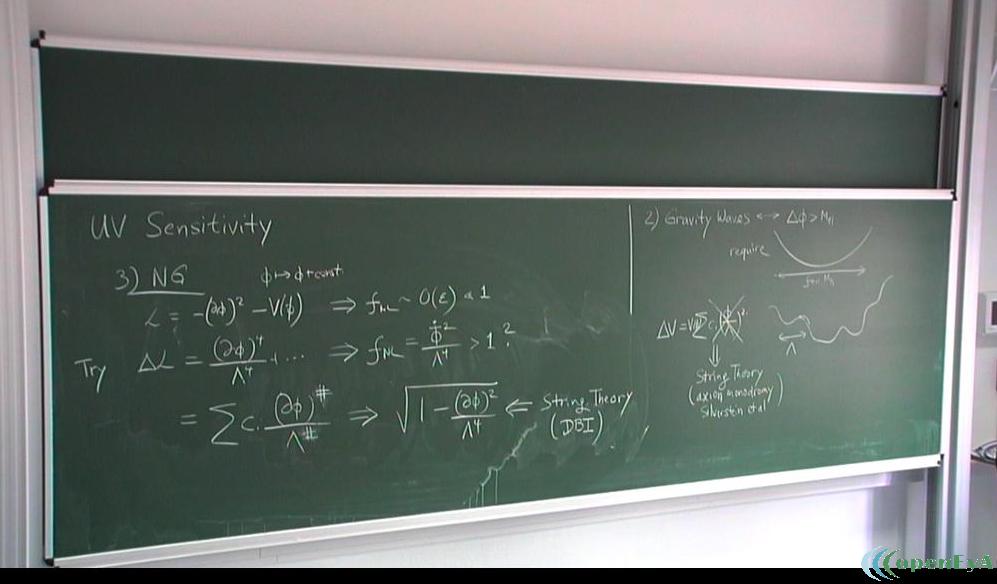 UV Sensitivity
3) NG φ ↦ φ + const
ℒ = -(∂φ)² - V(φ) ⇒ f_NL ~ O(ε) < 1
Try Δℒ = (∂φ)⁴/Λ⁴ + ... ⇒ f_NL = φ̇²/Λ⁴ > 1 ?
= Σ cᵢ (∂φ)^#/Λ^# ⇒ √(1 - (∂φ)²/Λ⁴) ⇐ String Theory
(DBI)
2) Gravity Waves ↔ Δφ > M_Pl
require
few M_Pl
Λ
⇓
String Theory
(axion monodromy
Silverstein et al)
openEyA